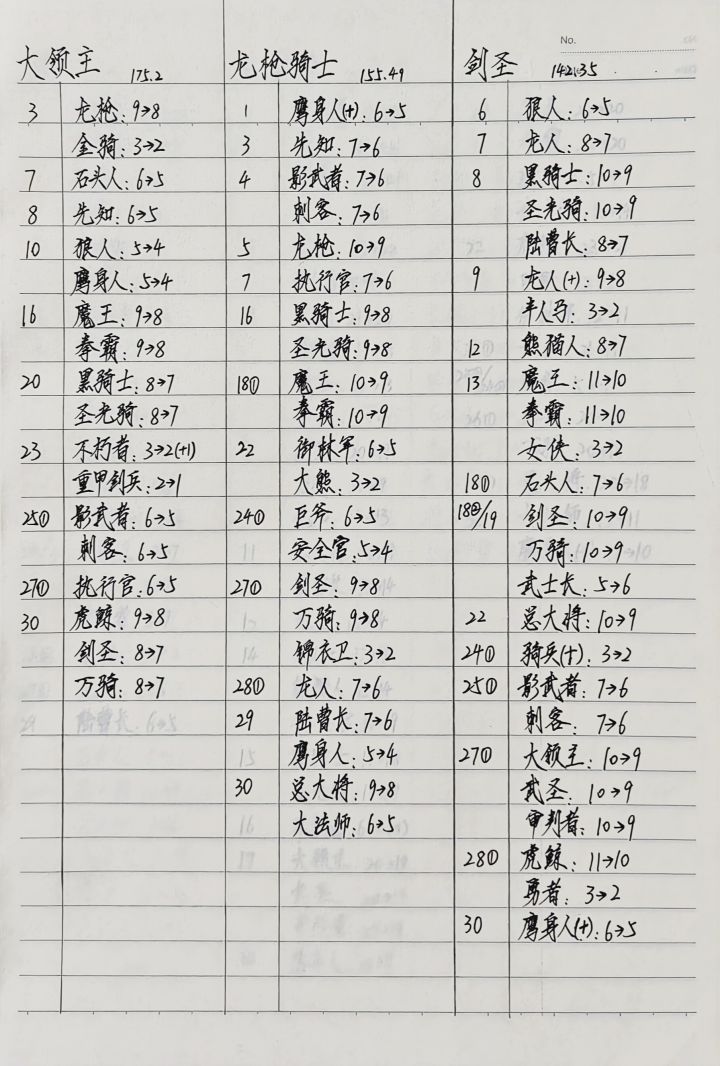 No.
大领主 175.2
3 龙枪: 9→8
金骑: 3→2
7 石头人: 6→5
8 先知: 6→5
10 狼人: 5→4
鹰身人: 5→4
16 魔王: 9→8
拳霸: 9→8
20 黑骑士: 8→7
圣光骑: 8→7
23 不朽者: 3→2(+1)
重甲剑兵: 2→1
25① 影武者: 6→5
刺客: 6→5
27① 执行官: 6→5
30 虎鲸: 9→8
剑圣: 8→7
万骑: 8→7
龙枪骑士 155.49
1 鹰身人(+): 6→5
3 先知: 7→6
4 影武者: 7→6
刺客: 7→6
5 龙枪: 10→9
7 执行官: 7→6
16 黑骑士: 9→8
圣光骑: 9→8
18① 魔王: 10→9
拳霸: 10→9
22 御林军: 6→5
大熊: 3→2
24① 巨斧: 6→5
安全官: 5→4
27① 剑圣: 9→8
万骑: 9→8
锦衣卫: 3→2
28① 龙人: 7→6
29 陆曹长: 7→6
鹰身人: 5→4
30 总大将: 9→8
大法师: 6→5
剑圣 142.35
6 狼人: 6→5
7 龙人: 8→7
8 黑骑士: 10→9
圣光骑: 10→9
陆曹长: 8→7
9 龙人(+): 9→8
半人马: 3→2
12 熊猫人: 8→7
13 魔王: 11→10
拳霸: 11→10
女侠: 3→2
18① 石头人: 7→6
18②/19 剑圣: 10→9
万骑: 10→9
武士长: 5→6
22 总大将: 10→9
24① 骑兵(+): 3→2
25① 影武者: 7→6
刺客: 7→6
27① 大领主: 10→9
武圣: 10→9
审判者: 10→9
28① 虎鲸: 11→10
勇者: 3→2
30 鹰身人(+): 6→5